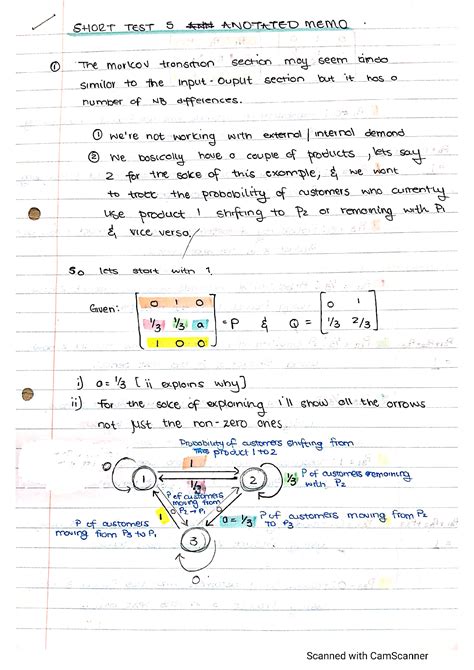 SHORT TEST 5 ANOTATED MEMO.
① The markov transition section may seem kinda
similar to the Input-Ouplit section but it has a
number of NB differences.
① we're not working with external / internal demand
② We basically have a couple of products, lets say
2 for the sake of this example, & we want
to track the probability of customers who currently
use product 1 shifting to P2 or remaning with P1
& vice versa.
So lets start with 1.
Given: [0 1 0
1/3 1/3 a = P & Q = [0 1
1 0 0] 1/3 2/3]
i) a = 1/3 [ii explains why]
ii) for the sake of explaining I'll show all the arrows
not just the non-zero ones.
Probability of customers shifting from
product 1 to 2
0 1
1 2 1/3 P of customers remaining
with P2
1/3
P of customers
moving from
P2 → P1
P of customers
moving from P3 to P1
1 0 0 a = 1/3 P of customers moving from P2
TO P3
3
0
Scanned with CamScanner